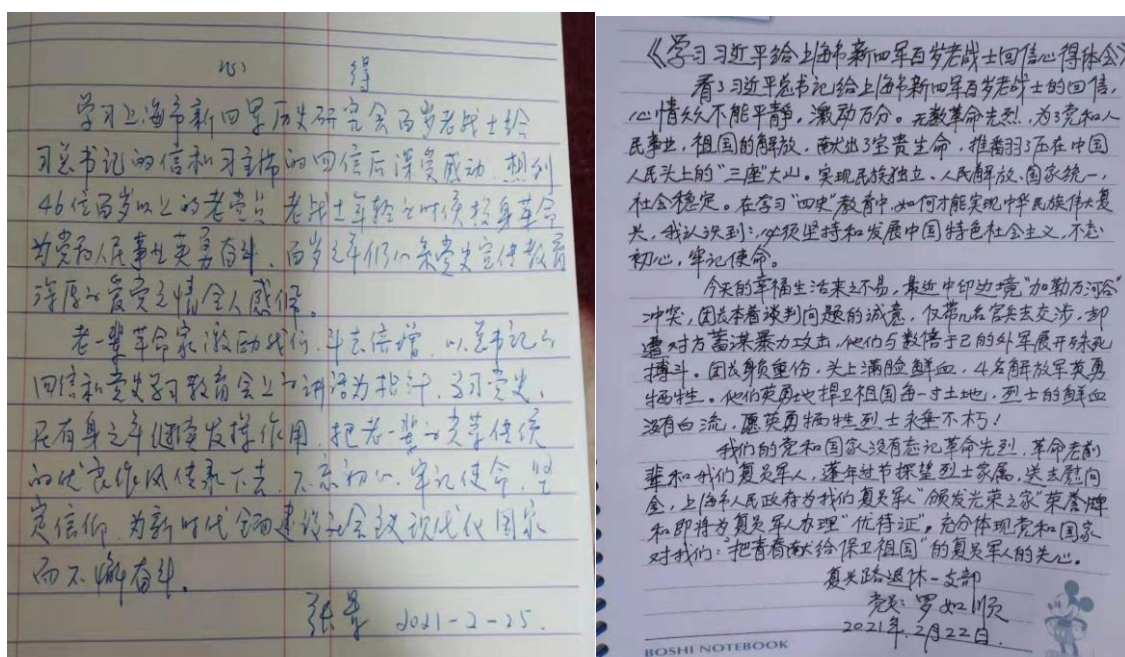 心 得
学习上海市新四军历史研究会百岁老战士给
习总书记的信和习主席的回信后深受感动，想到
46位百岁以上的老党员 老战士年轻之时候投身革命
为党为人民事业英勇奋斗，百岁之年仍心系党史宣传教育
深厚的爱党之情令人感佩。
老一辈革命家激励我们，斗志倍增，以总书记的
回信和党史学习教育会上的讲话为指针，学习党史，
在有身之年继续发挥作用，把老一辈的光荣传统
的优良作风传承下去，不忘初心，牢记使命，坚
定信仰，为新时代全面建设社会主义现代化国家
而不懈奋斗。
2021-2-25.
《学习习近平给上海市新四军百岁老战士回信心得体会》
看了习近平总书记给上海市新四军百岁老战士的回信，
心情久久不能平静，激动万分。无数革命先烈，为了党和人
民事业，祖国的解放，献出了宝贵生命，推翻了压在中国
人民头上的"三座"大山。实现民族独立、人民解放、国家统一，
社会稳定。在学习"四史"教育中，如何才能实现中华民族伟大复
兴，我认识到：必须坚持和发展中国特色社会主义，不忘
初心，牢记使命。
今天的幸福生活来之不易，最近中印边境"加勒万河谷"
冲突，团长本着谈判问题的诚意，仅带几名官兵去交涉，却
遭对方蓄谋暴力攻击，他们与数倍于己的外军展开殊死
搏斗。团长身负重伤，头上满脸鲜血，4名解放军英勇
牺牲。他们英勇地捍卫祖国每一寸土地，烈士的鲜血
没有白流，愿英勇牺牲烈士永垂不朽！
我们的党和国家没有忘记革命先烈，革命老前
辈和我们复员军人，逢年过节探望烈士家属，送去慰问
金，上海市人民政府为我们复员军人"颁发光荣之家"荣誉牌
和即将为复员军人办理"优待证"，充分体现党和国家
对我们："把青春献给保卫祖国"的复员军人的关心。
复兴路退休一支部
党员：罗如顺
2021年2月22日.
BOSHI NOTEBOOK